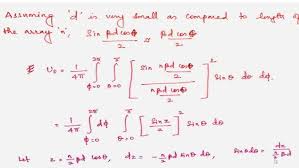 Assuming 'd' is very small as compared to length of
the array 'n', sin βd cosϕ/2 ≈ βd cosϕ/2
U₀ = 1/4π ∫ϕ=0^2π ∫θ=0^π [ sin (nβd cosϕ/2) / (nβd cosϕ/2) ]² sinθ dθ dϕ.
= 1/4π ∫ϕ=0^2π dϕ ∫0^π [ sin z / z ]² sinθ dθ
Let z = n/2 βd cosθ, dz = - n/2 βd sinθ dθ. sinθdθ = dz / n/2 βd